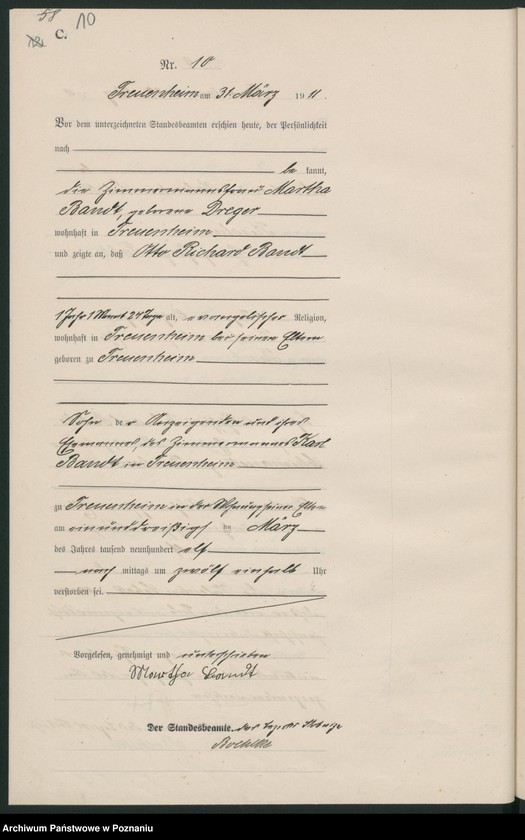 58
10
C.
Nr. 10
Treuenheim am 31. März 1911.
Vor dem unterzeichneten Standesbeamten erschien heute, der Persönlichkeit
nach
be kannt,
die Zimmermannsfrau Martha
Bandt, geborene Dreger
wohnhaft in Treuenheim
und zeigte an, daß Otto Richard Bandt
1 Jahr 1 Monat 24 Tage alt, evangelischer Religion,
wohnhaft in Treuenheim bei seinen Eltern
geboren zu Treuenheim
Sohn der Anzeigenden und ihres
Ehemannes, des Zimmermannes Karl
Bandt in Treuenheim
zu Treuenheim in der Wohnung seiner Eltern
am einunddreißigs ten März
des Jahres tausend neunhundert elf
nach mittags um zwölf einhalb Uhr
verstorben sei.
Vorgelesen, genehmigt und unterschrieben
Martha Bandt
Der Standesbeamte.
Archiwum Państwowe w Poznaniu